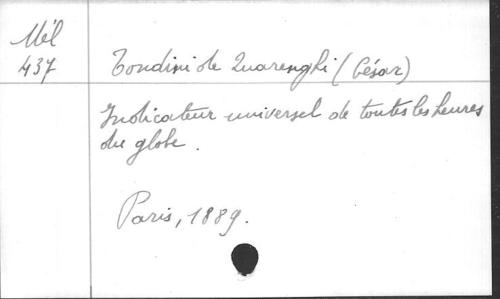 Mél
437
Tondini de Quarenghi (César)
Indicateur universel de toutes les heures
du globe.
Paris, 1889.